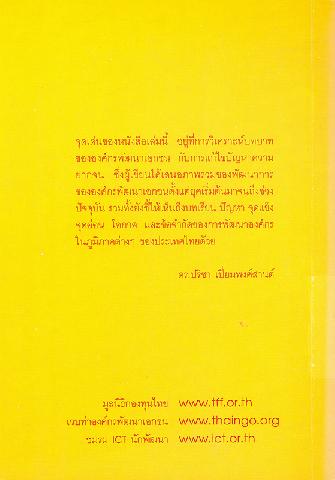 จุดเด่นของหนังสือเล่มนี้ อยู่ที่การวิเคราะห์บทบาท
ขององค์กรพัฒนาเอกชน กับการแก้ไขปัญหาความ
ยากจน ซึ่งผู้เขียนได้เสนอภาพรวมของพัฒนาการ
ขององค์กรพัฒนาเอกชนตั้งแต่ยุคเริ่มต้นมาจนถึงช่วง
ปัจจุบัน รวมทั้งยังชี้ให้เห็นถึงบทเรียน ปัญหา จุดแข็ง
จุดอ่อน โอกาส และข้อจำกัดของการพัฒนาองค์กร
ในภูมิภาคต่างๆ ของประเทศไทยด้วย
ดร.ปรีชา เปี่ยมพงศ์สานต์
มูลนิธิกองทุนไทย www.tff.or.th
เวบท่าองค์กรพัฒนาเอกชน www.thaingo.org
ชมรม ICT นักพัฒนา www.ict.or.th